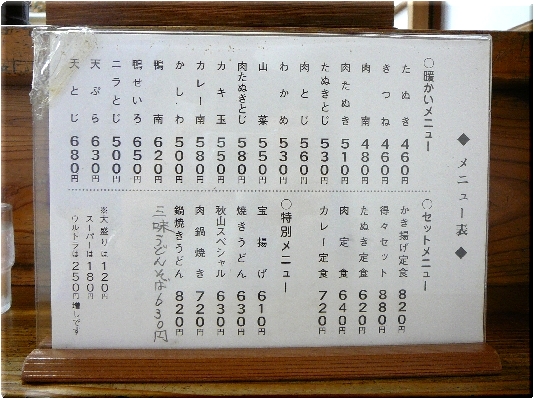 ◆ メニュー表 ◆
〇暖かいメニュー
たぬき 460円
きつね 460円
肉南 480円
肉たぬき 510円
たぬきとじ 530円
肉とじ 円
わかめ 530円
山菜 550円
肉たぬきとじ 580円
カキ玉 550円
カレー南 580円
かしわ 500円
鴨南 620円
鴨せいろ 650円
ニラとじ 500円
天ぷら 630円
天とじ 680円
〇セットメニュー
かき揚げ定食 820円
得々セット 880円
たぬき定食 620円
肉定食 640円
カレー定食 720円
〇特別メニュー
宝揚げ 610円
焼きうどん 630円
秋山スペシャル 630円
肉鍋焼き 720円
鍋焼きうどん 820円
三味うどんそば630円
※大盛りは120円
スーパーは180円
ウルトラは250円増しです